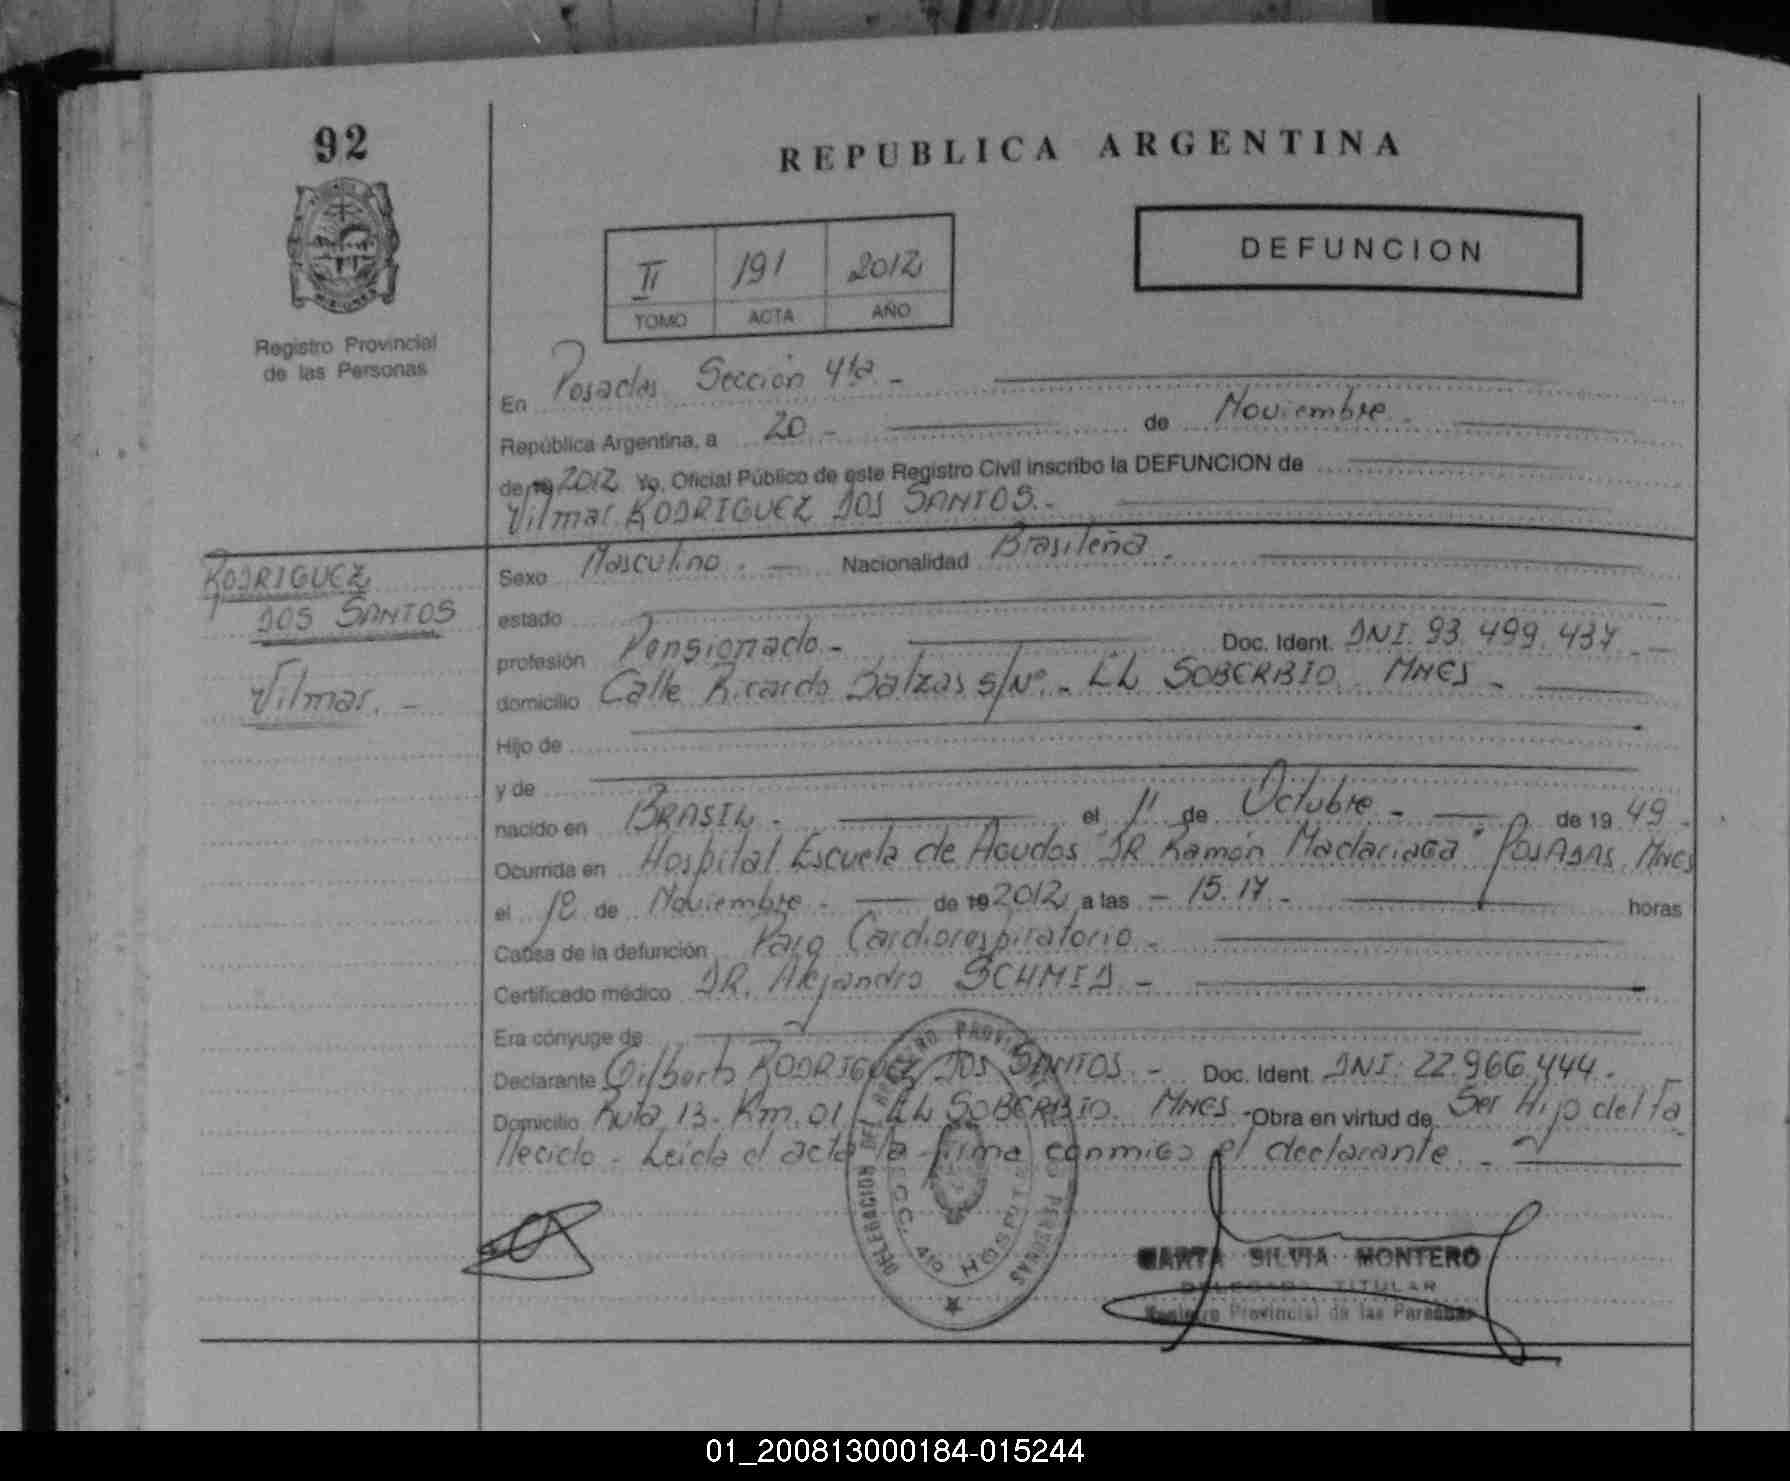 92
REPUBLICA ARGENTINA
DEFUNCION
II 191 2012
TOMO ACTA AÑO
Registro Provincial
de las Personas
En Posadas Sección 4ta -
República Argentina, a 20 - de Noviembre -
de 19 2012 Yo, Oficial Público de este Registro Civil inscribo la DEFUNCION de
Vilmar RODRIGUEZ DOS SANTOS.-
RODRIGUEZ
DOS SANTOS
Vilmar. -
Sexo Masculino. - Nacionalidad Brasileña -
estado
profesión Pensionado - Doc. Ident. DNI. 93.499.437 -
domicilio Calle Ricardo Balzas s/Nº. - EL SOBERBIO MNES -
Hijo de
y de
nacido en BRASIL - el 11 de Octubre - de 19 49 -
Ocurrida en Hospital Escuela de Agudos "DR Ramón Madariaga" POSADAS MNES
el de Noviembre - de 19 2012 a las - 15.17 - horas
Causa de la defunción Paro Cardiorespiratorio -
Certificado médico DR. Alejandro SCHMID -
Era cónyuge de
Declarante Gilberto RODRIGUEZ DOS SANTOS - Doc. Ident. DNI: 22.966.444 -
Domicilio Ruta 13 - Km. 01 - EL SOBERBIO. MNES - Obra en virtud de Ser Hijo del Fa
llecido - Leida el acta la firma conmigo el declarante. -
DELEGACION DEL REGISTRO PROVINCIAL DE LAS PERSONAS
SECC. 4º HOSPITAL
MARTA SILVIA MONTERO
DELEGADA TITULAR
Registro Provincial de las Personas
01_200813000184-015244